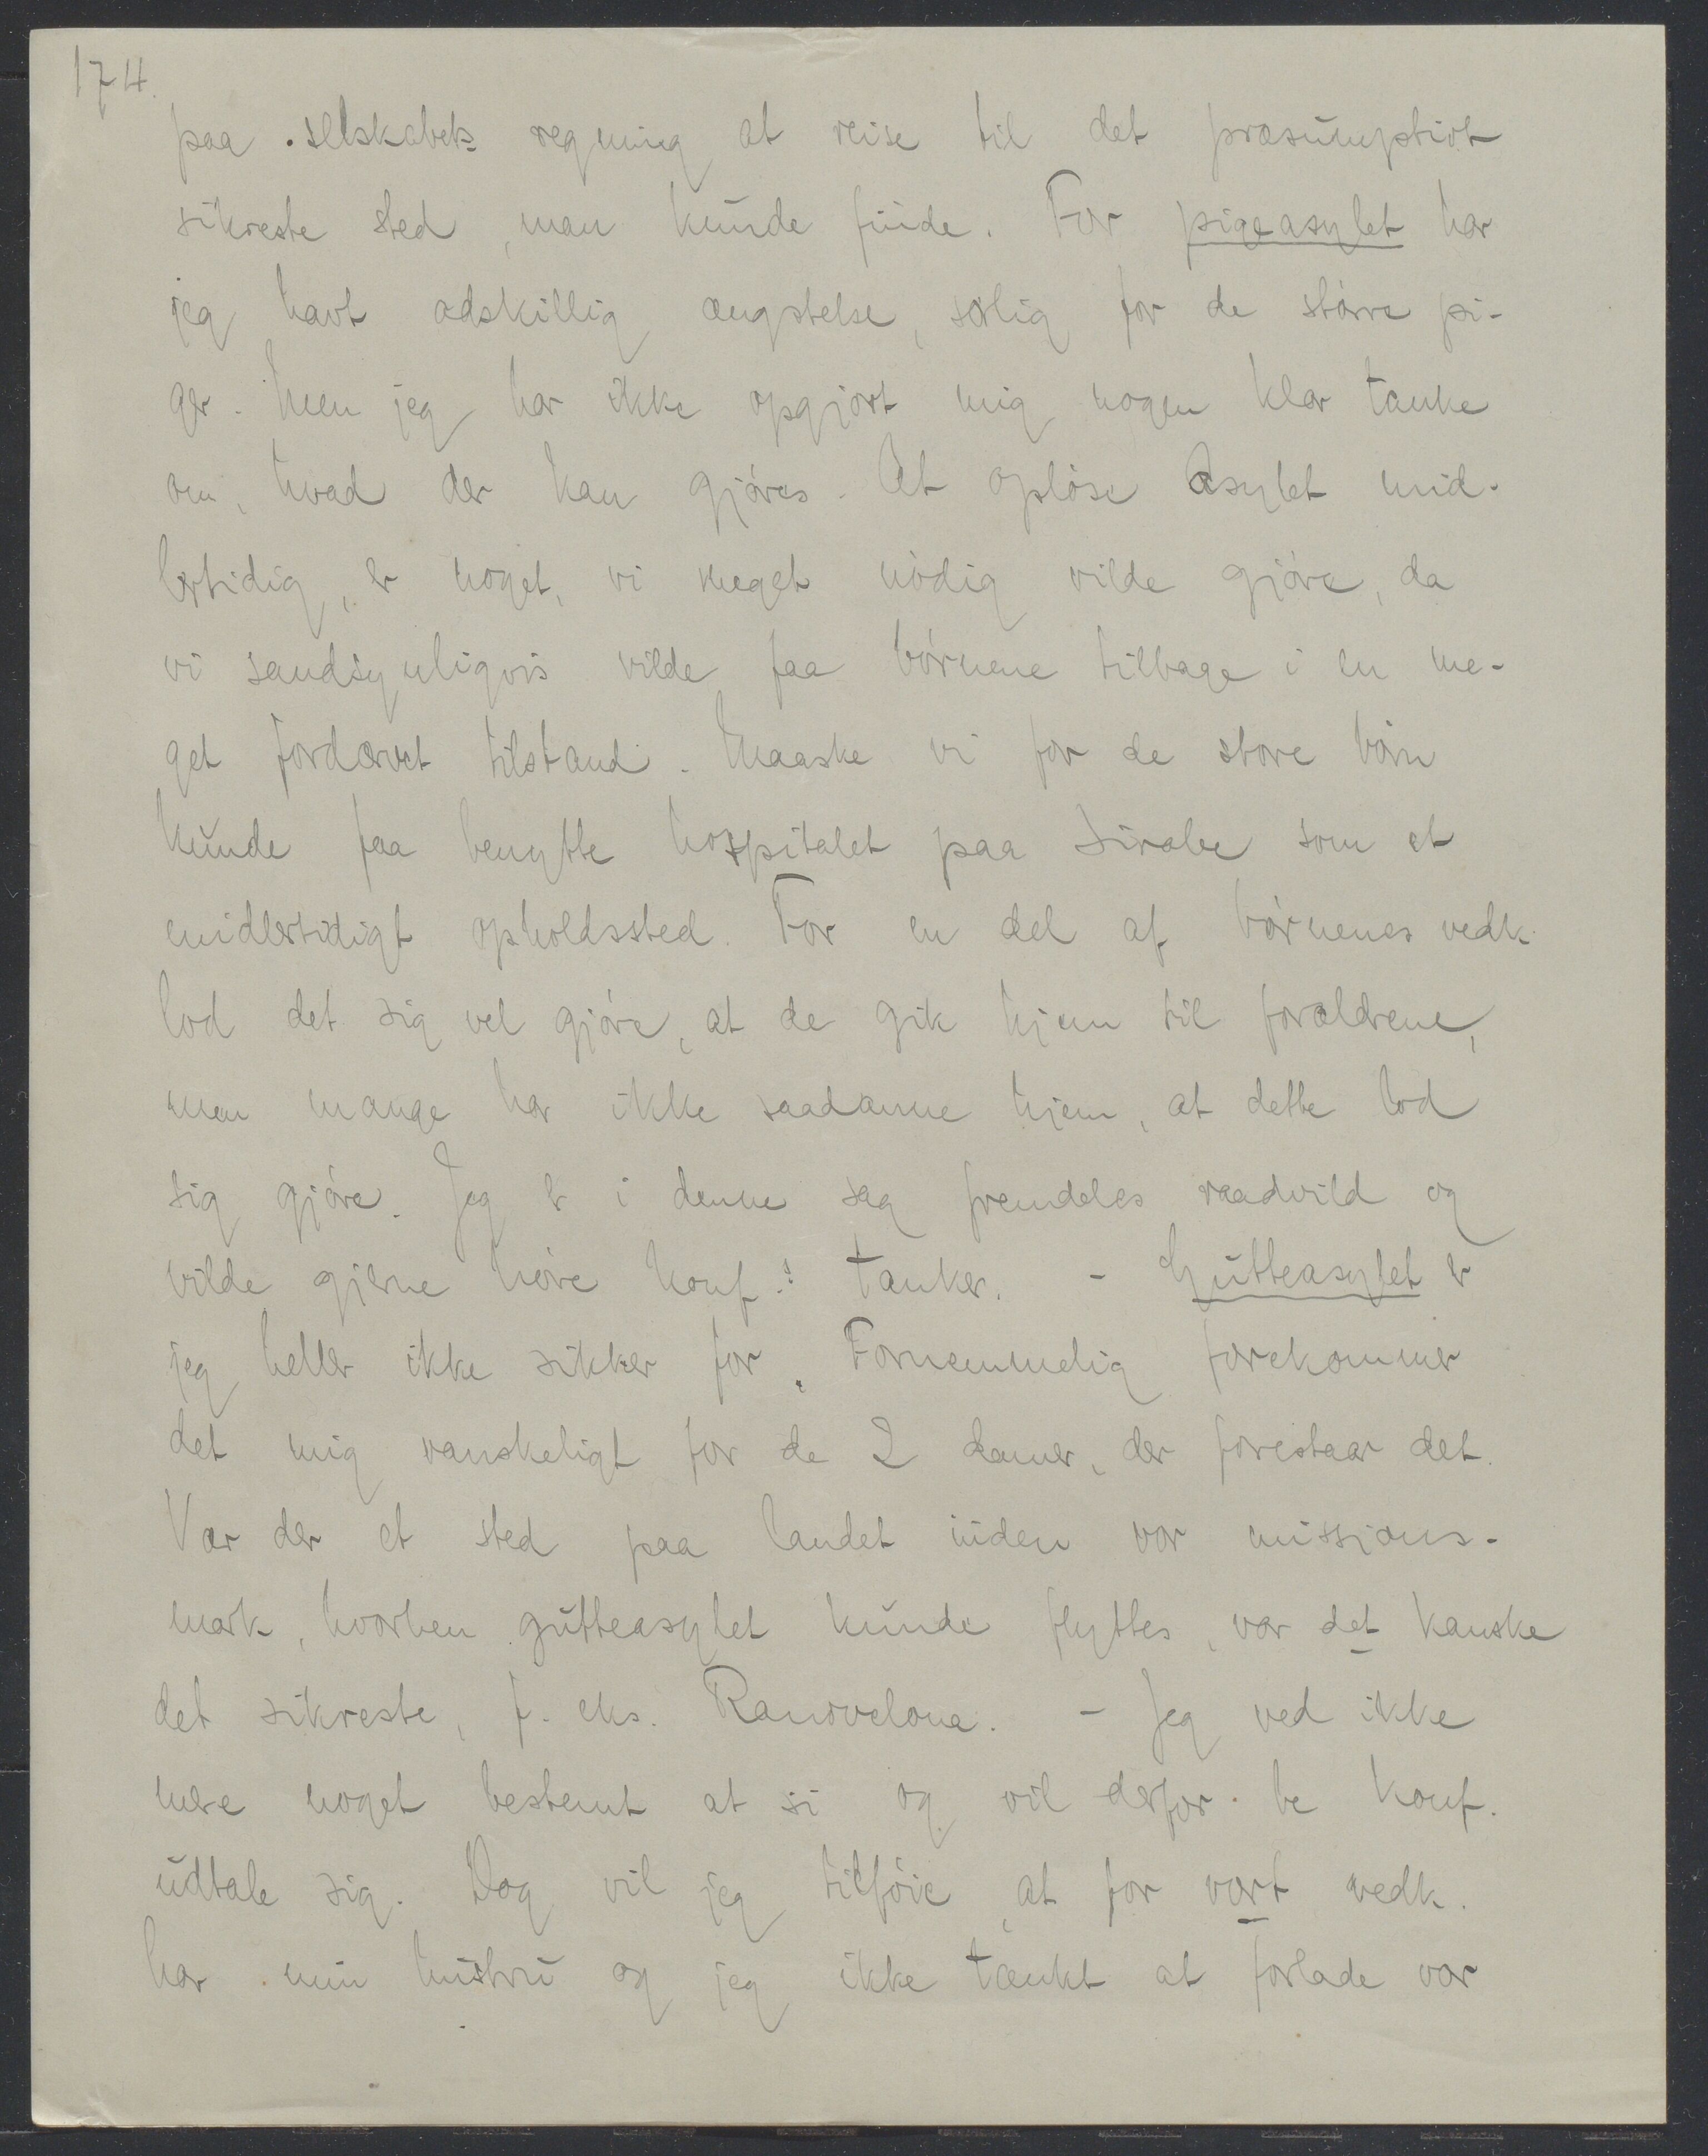 174.
paa selskabets regning at reise til det præsumptivt
sikreste sted, man kunde finde. For pigeasylet har
jeg havt adskillig ængstelse, særlig for de større pi-
ger. Men jeg har ikke opgjort mig nogen klar tanke
om, hvad der kan gjøres. At opløse asylet mid-
lertidig, er noget, vi meget nødig vilde gjøre, da
vi sandsynligvis vilde faa børnene tilbage i en me-
get fordærvet tilstand. Maaske vi for de store børn
kunde faa benytte hospitalet paa Sirabe som et
midlertidigt opholdssted. For en del af børnenes vedk.
lod det sig vel gjøre, at de gik hjem til forældrene,
men mange har ikke saadanne hjem, at dette lod
sig gjøre. Jeg er i denne sag fremdeles raadvild og
vilde gjerne høre konf.s tanker. - Gutteasylet er
jeg heller ikke sikker for. Fornemmelig forekommer
det mig vanskeligt for de 2 damer, der forestaar det.
Var der et sted paa landet inden vor missjons-
mark, hvorhen gutteasylet kunde flyttes, var det kanske
det sikreste, f. eks. Ranovelona. - Jeg ved ikke
mere noget bestemt at si og vil derfor be konf.
udtale sig. Dog vil jeg tilføie, at for vort vedk.
har min hustru og jeg ikke tænkt at forlade vor